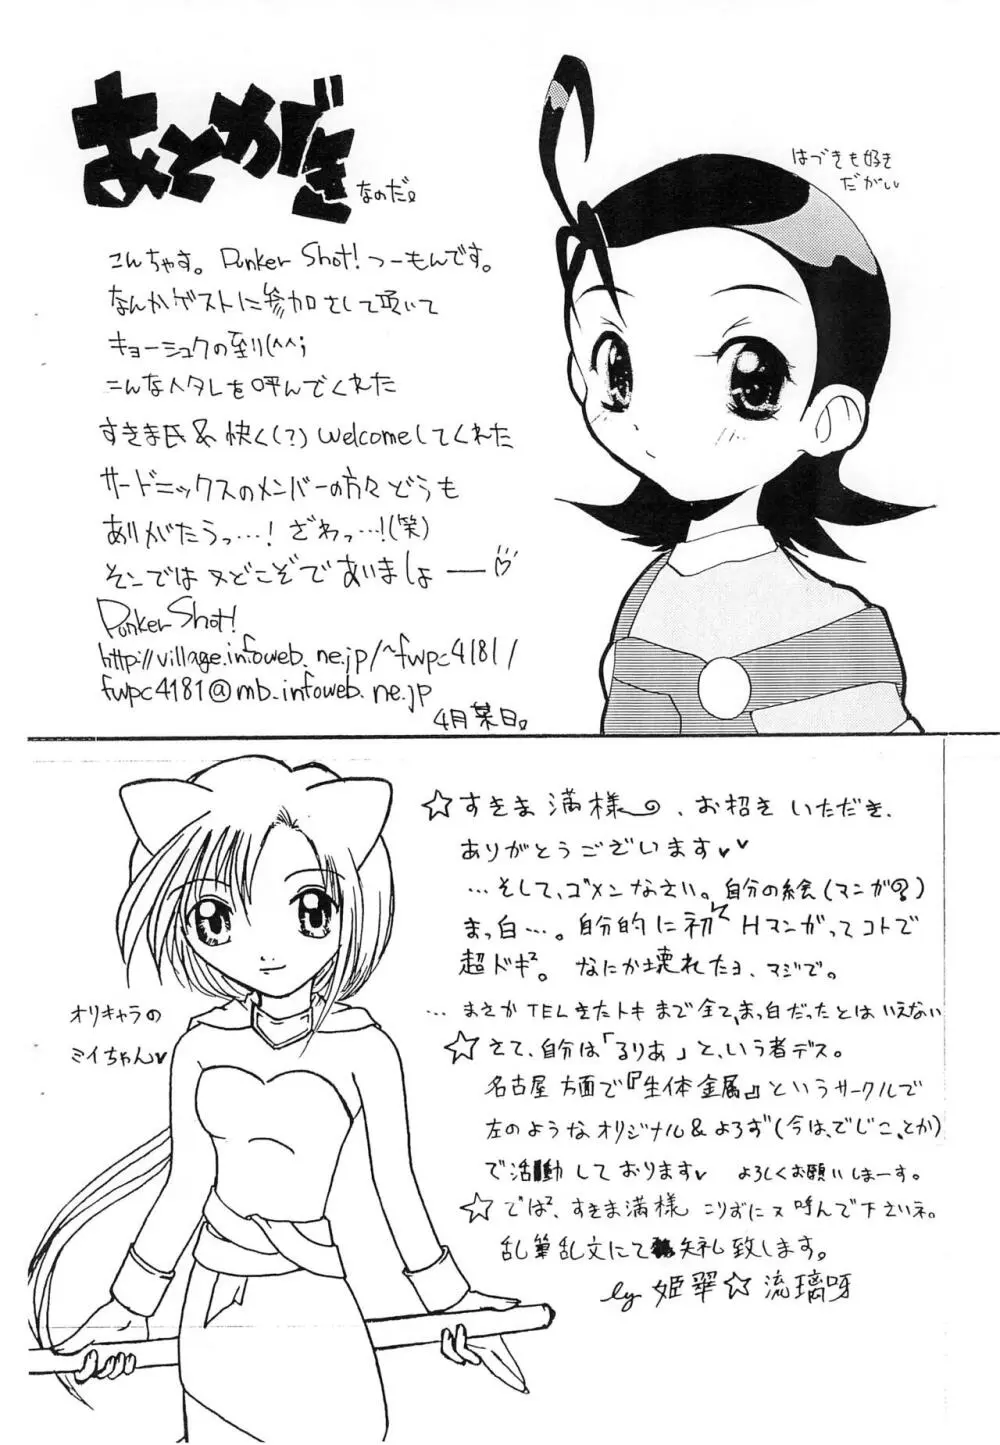 あとがき
なのだ。
はづきも好き
だがいい
こんちゃす。Dunker Shot!つーもんです。
なんかゲストに参加さして頂いて
キョーシュクの至り(^^;
こんなヘタレを呼んでくれた
すきま氏&快く(?)welcomeしてくれた
サードニックスのメンバーの方々どうも
ありがたうっ…!ざわっ…!(笑)
そんではヌどこぞであいましょー♡
Dunker Shot!
http://village.infoweb.ne.jp/~fwpc4181/
fwpc4181@mb.infoweb.ne.jp
4月某日。
☆すきま満様、お招きいただき、
ありがとうございます♥♥
…そして、ゴメンなさい。自分の絵(マンガ?)
まっ白…。自分的に初Hマンガってコトで
超ドキ²。なにか壊れたヨ、マジで。
… まさかTELきたトキまで全てまっ白だったとはいえない
☆さて、自分は「るりあ」と、いう者デス。
名古屋方面で『生体金属』というサークルで
左のようなオリジナル&よろず(今は、でじこ、とか)
で活動しております♥ よろしくお願いしまーす。
☆では²、すきま満様 こりずにヌ呼んで下さいネ。
乱筆乱文にて失礼致します。
by 姫翠☆流璃呀
オリキャラの
ミイちゃん♥